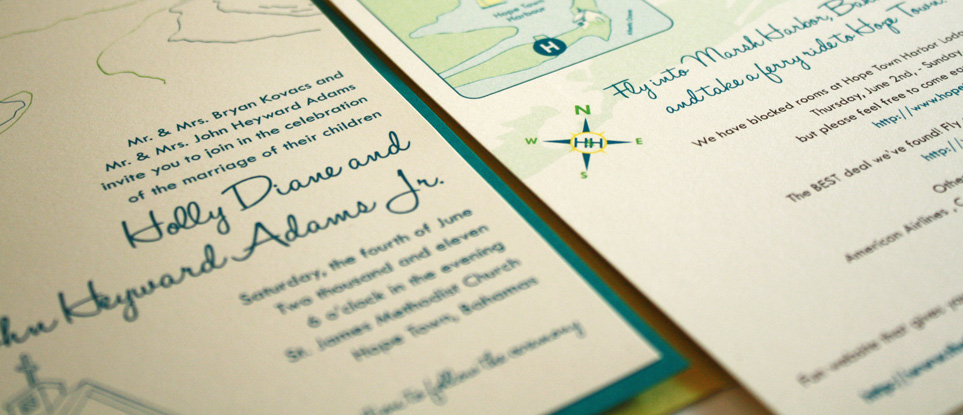 Mr. & Mrs. Bryan Kovacs and
Mr. & Mrs. John Heyward Adams
invite you to join in the celebration
of the marriage of their children
Holly Diane and
Heyward Adams Jr.
Saturday, the fourth of June
Two thousand and eleven
6 o'clock in the evening
St. James Methodist Church
Hope Town, Bahamas
to follow the ceremony
Hope Town
Harbour
H
N
W
E
S
HH
Fly into Marsh Harbor,
and take a ferry ride to Hope Town.
We have blocked rooms at Hope Town Harbor
Thursday, June 2nd, - Sunday
but please feel free to come
http://www.hope
The BEST deal we've found! Fly
http://
American Airlines,
For website that gives